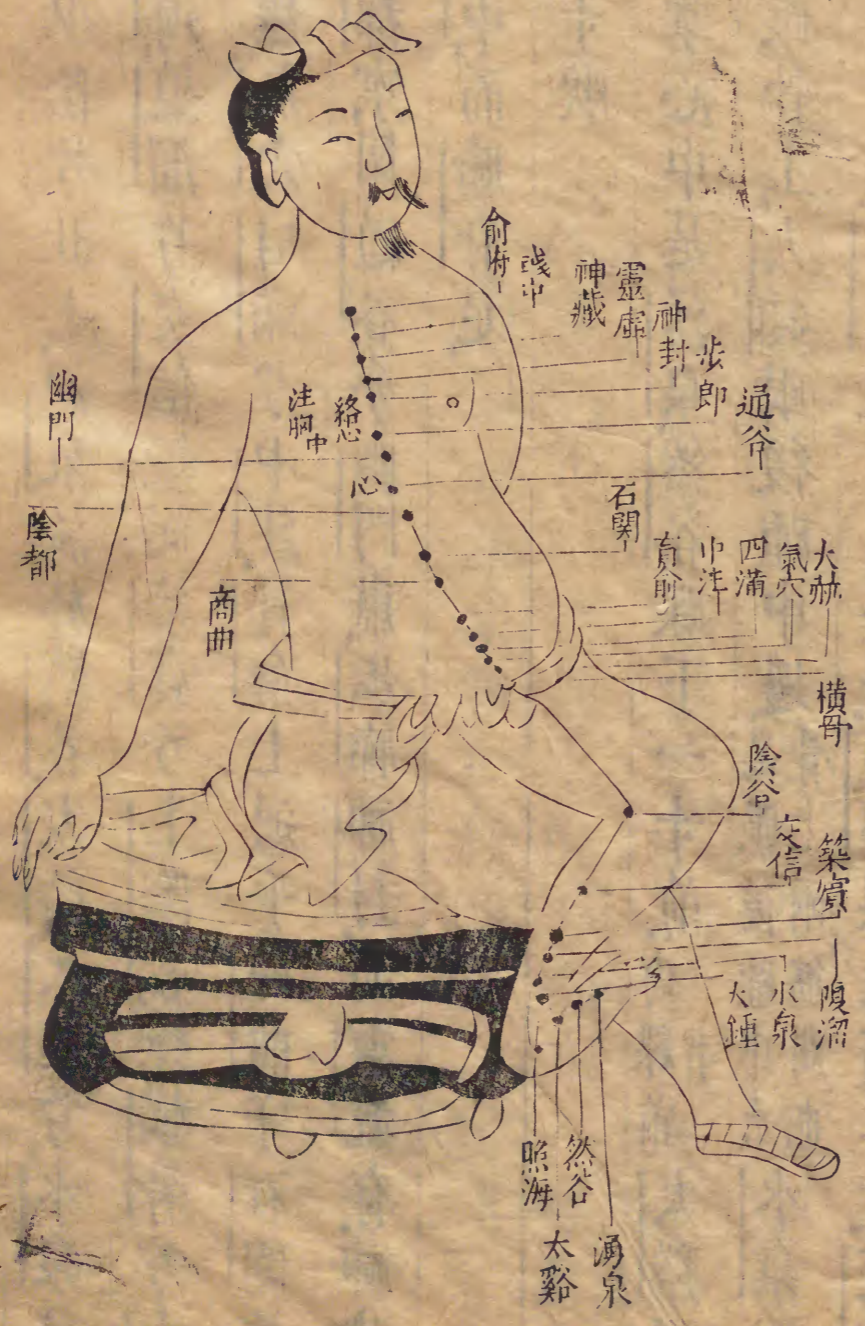 俞府
彧中
神藏
靈虛
神封
步郎
通谷
幽門
注胸中
絡心
心
陰都
石関
商曲
肓俞
中注
四滿
氣穴
大赫
橫骨
陰谷
交信
築賓
大鍾
水泉
復溜
照海
然谷
太谿
湧泉